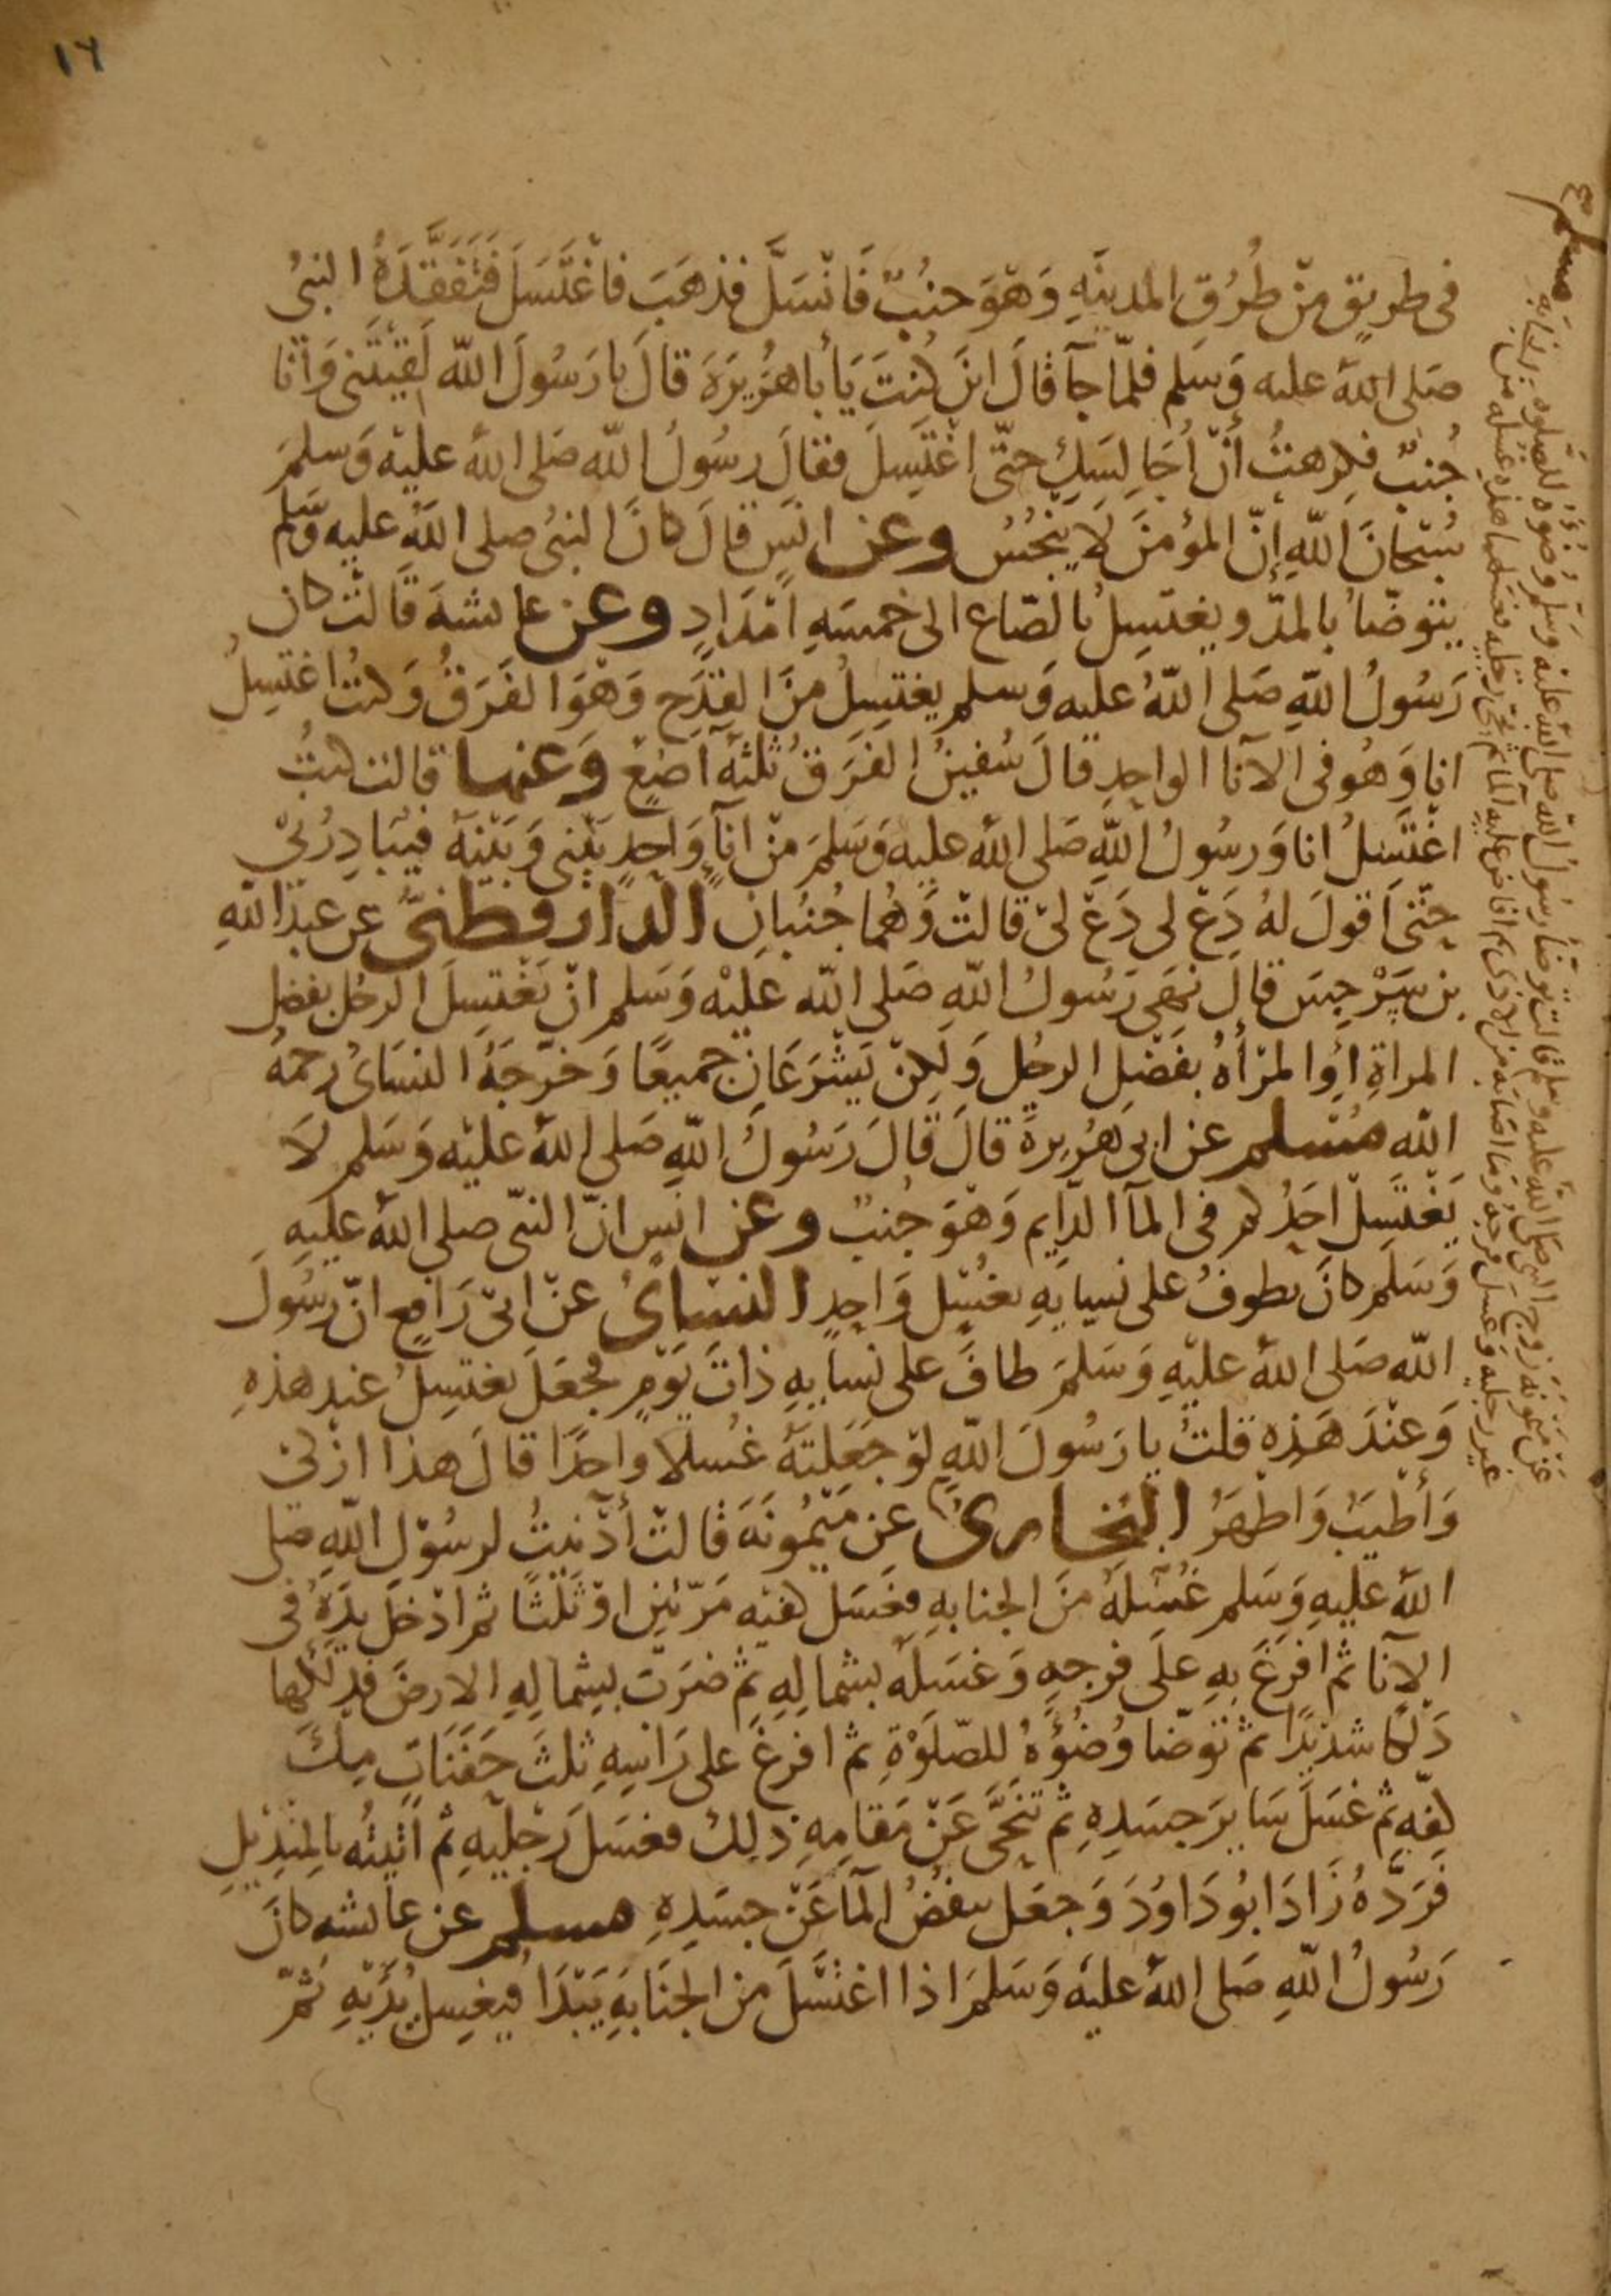 ١٦
في طريق مِنْ طُرُقِ المدينَةِ وَهْوَ جنُبٌ فَانْسَلَّ فذهَبَ فاغْتَسَلَ فَتَفَقَّدَهُ النبيُ
صَلى اللهُ عليه وَسَلم فلمّا جآ قالَ اينَ كنتَ يَأبا هُرَيرَةَ قالَ يا رَسُولَ اللّه لَقِيتَنى وَأنا
جُنبٌ فكرهتُ أنْ اُجَالِسَكَ حتّى اغْتَسِلَ فقالَ رسُولُ اللّه صَلى اللهُ عليْه وَسلمَ
سُبْحَانَ اللّهِ إنّ المؤمنَ لَا يَنْجُسُ وعن انسٍ قالَ كانَ النبىُ صلى اللهُ عليه وَسَلم
يتوضّأ بالمدّ ويغتسِلُ بالصّاع الى خمسَةِ امْدَادٍ وعن عايشهَ قالتْ كان
رَسُولُ اللّهِ صَلى اللّهُ عليه وَسلم يغتسِلُ منَ القدَحِ وَهْوَ الفَرَقُ وَكنتُ اغتسِلُ
انا وَهُو فى الآنا الواحِدِ قالَ سُفينُ الفَرَقُ ثلثَةُ آصُعٍ وَعنها قالت كنتُ
اغْتَسِلُ انا وَرسُولُ اللّهِ صَلى اللهُ عليه وَسَلمَ منْ انآءٍ وَاحِدٍ بَيْنى وَبَيْنَهُ فيُبَادِرُنِيْ
حتّى اَقولَ لهُ دَعْ لى دَعْ لىْ قالتْ وَهُما جُنُبانِ الدارقطنىُّ عن عبْدِ اللّهِ
بن سَرْجِسَ قالَ نهَى رَسُولُ اللّهِ صَلى اللّه عَليْه وَسَلم انْ يَغْتسِلَ الرجُل بفضل
المراةِ اوْ المرْأةُ بفَضْلِ الرجُلِ وَلكِنْ يَشْرَعَانِ جميعًا وَخرّجَهُ النسَائُ رحمهُ
اللّه مُسْلم عن ابى هُرَيرةَ قالَ قالَ رَسُولُ اللّهِ صَلى اللهُ عليْه وَسَلم لَا
يَغْتسِلْ احَدُكم فى المآ الدّايم وَهْوَ جُنبٌ وعن انسٍ انّ النبّى صلى اللهُ عليهِ
وَسَلمَ كانَ يطوفُ على نسايهِ بغُسْلٍ وَاحِدٍ النسائُ عنْ ابىْ رَافعٍ انّ رسُولَ
اللّه صَلى اللهُ عليْهِ وَسَلمَ طافَ على نسَايهِ ذاتَ يَوْمٍ فجعَلَ يغتسِلُ عند هذهِ
وَعنْدَ هَذِه قلتُ يا رَسُولَ اللّهِ لوْ جَعَلتَهُ غُسْلًا واحدًا قالَ هذا ازْكىْ
وَأطْيَبُ وَاطْهَرُ البُخارىُ عن مَيْمُونَةَ قالتْ أدْنَيْتُ لرسُوْلِ اللّهِ صَلى
اللهُ عليهِ وَسَلم غُسْلَهُ منَ الجنابهِ فغَسَل كفيْه مَرّتينِ اوْ ثَلثًا ثم ادْخَلَ يدَهُ فى
الآنا ثم افرَغَ بهِ على فرجهِ وَغسَلهُ بشمالِهِ ثم ضرَبَ بشِمالِهِ الارضَ فدلكها
دَلكا شديْدًا ثم توضّا وُضُؤهُ للصّلَوةِ ثم افرغَ على رَاسِهِ ثلثَ حَفَنَاتٍ مِلْءَ
كفّهِ ثم غسَلَ سَايرَ جسَدِهِ ثم تنَحَّى عَنْ مَقامِهِ ذلك فغسَلَ رَجْليْهِ ثم اتيْتُه بالمِنْدِيْلِ
فرَدَّهُ زَادَ ابُو دَاوُدَ وَجعَل ينفُضُ المآ عَنْ جسَدِهِ مسلم عن عايشه كانَ
رَسُولُ اللّهِ صَلى اللهُ عليهَ وَسَلمَ اذا اغتسَلَ من الجنابَهِ يَبْدَأ فيغسِل يَدَيْهِ ثمّ
مسلم
عَنْ مَيمونةَ زَوج النبي صلى الله عليه وسلم قالت توضأ رسُولُ اللّه صلى اللهُ عليه وسلم وضوءه للصّلوه
غير رجليه وغسل فرجه وما اصابه من الاذى ثم افاض عليه الما ثم نحى رجليه فغسلهما هذه غسله من الجنابه